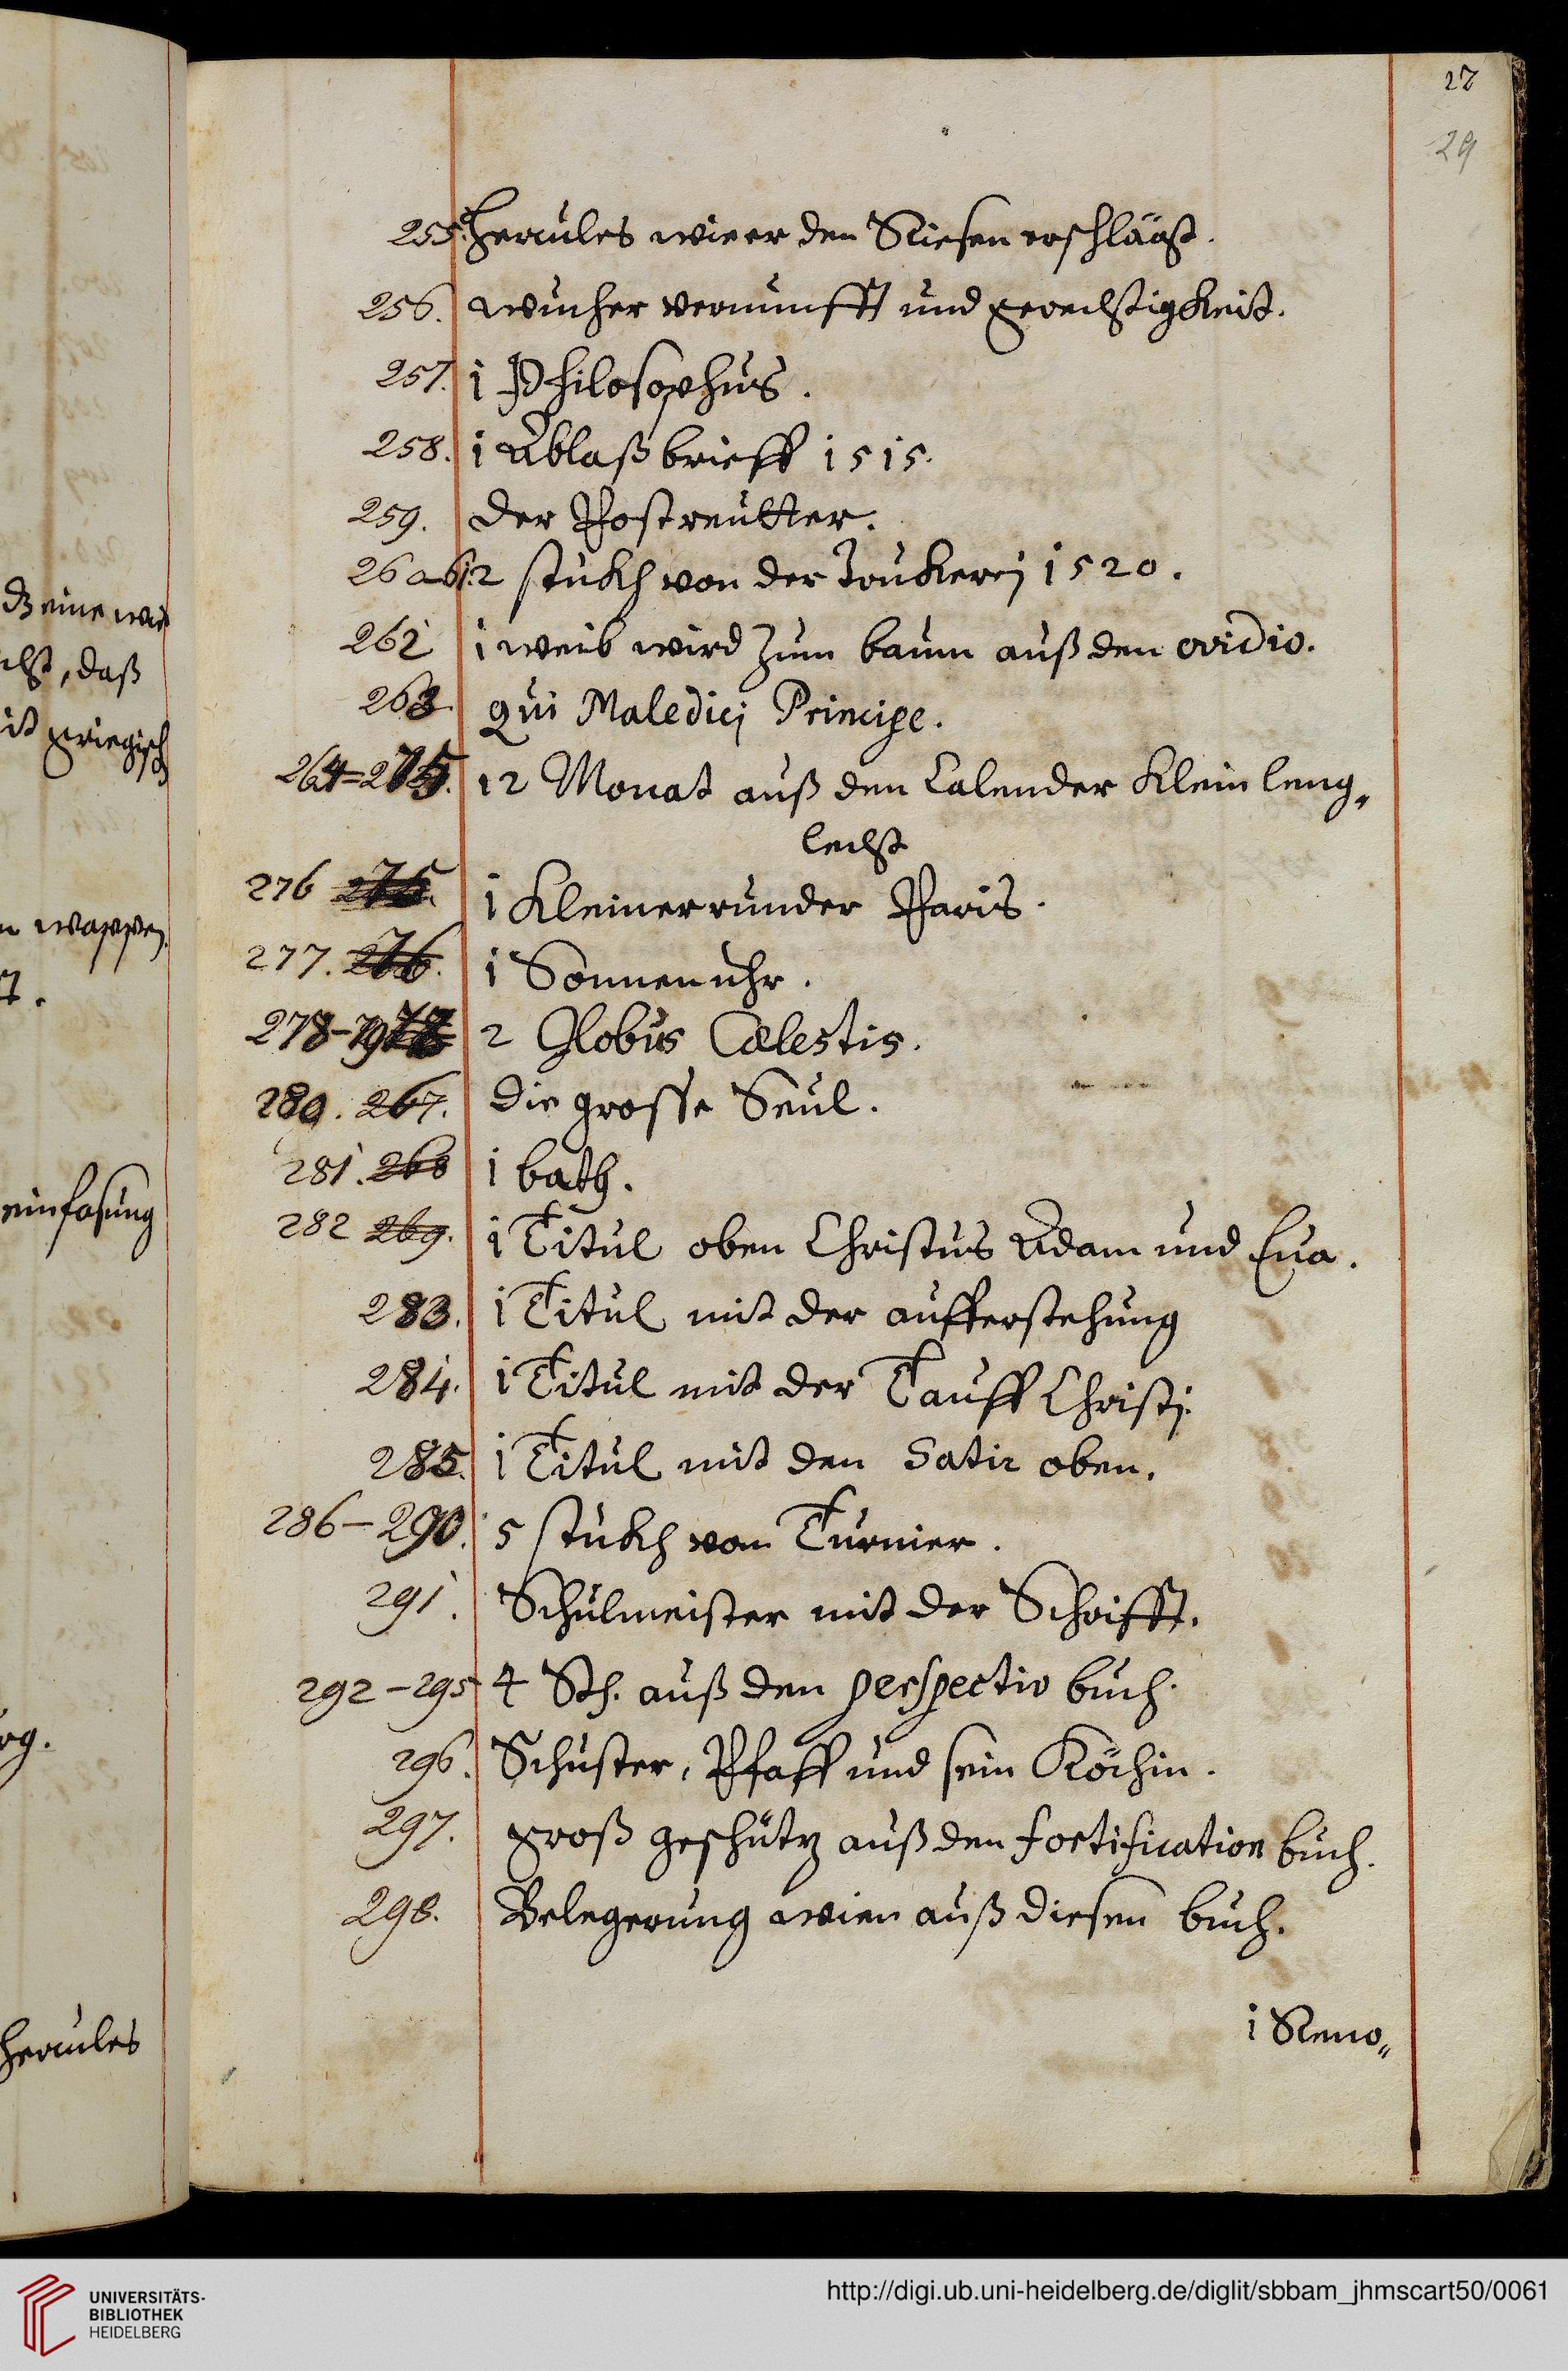 27
29
255. Hercules wie er den Riesen erschlägt.
256. wucher vernunfft und gerechtigkeit.
257. 1 Philosophus.
258. 1 Ablaß brieff 1515.
259. der Postreutter.
260-61. 2 stukh von der Trukerej 1520.
262 1 weib wird zum baum auß den ovidio.
263. qui Maledicj Principe.
264=275. 12 Monat auß den Calender klein leng„
lecht
276 275. 1 kleiner runder Paris.
277. 276. 1 Sonnen uhr.
278-79 2 Globus Cælestis.
280. 267. die grosse Seul.
281. 268 1 bath.
282 269. 1 Titul oben Christus Adam und Eua.
283. 1 Titul mit der aufferstehung
284. 1 Titul mit der Tauff Christj.
285. 1 Titul mit den Satir oben.
286-290. 5 stukh von Turnier.
291. Schulmeister mit der Schrifft.
292-295 4 Sth. auß den perspectiv buch.
296. Schuster, Pfaff und sein Köchin.
297. groß geschütz auß den fortification buch.
298. Belegerung wien auß diesen buch.
1 Reno„
eine
daß
griegisch
wappen
einfasung
Hercules
UNIVERSITÄTS-
BIBLIOTHEK
HEIDELBERG
http://digi.ub.uni-heidelberg.de/diglit/sbbam_jhmscart50/0061